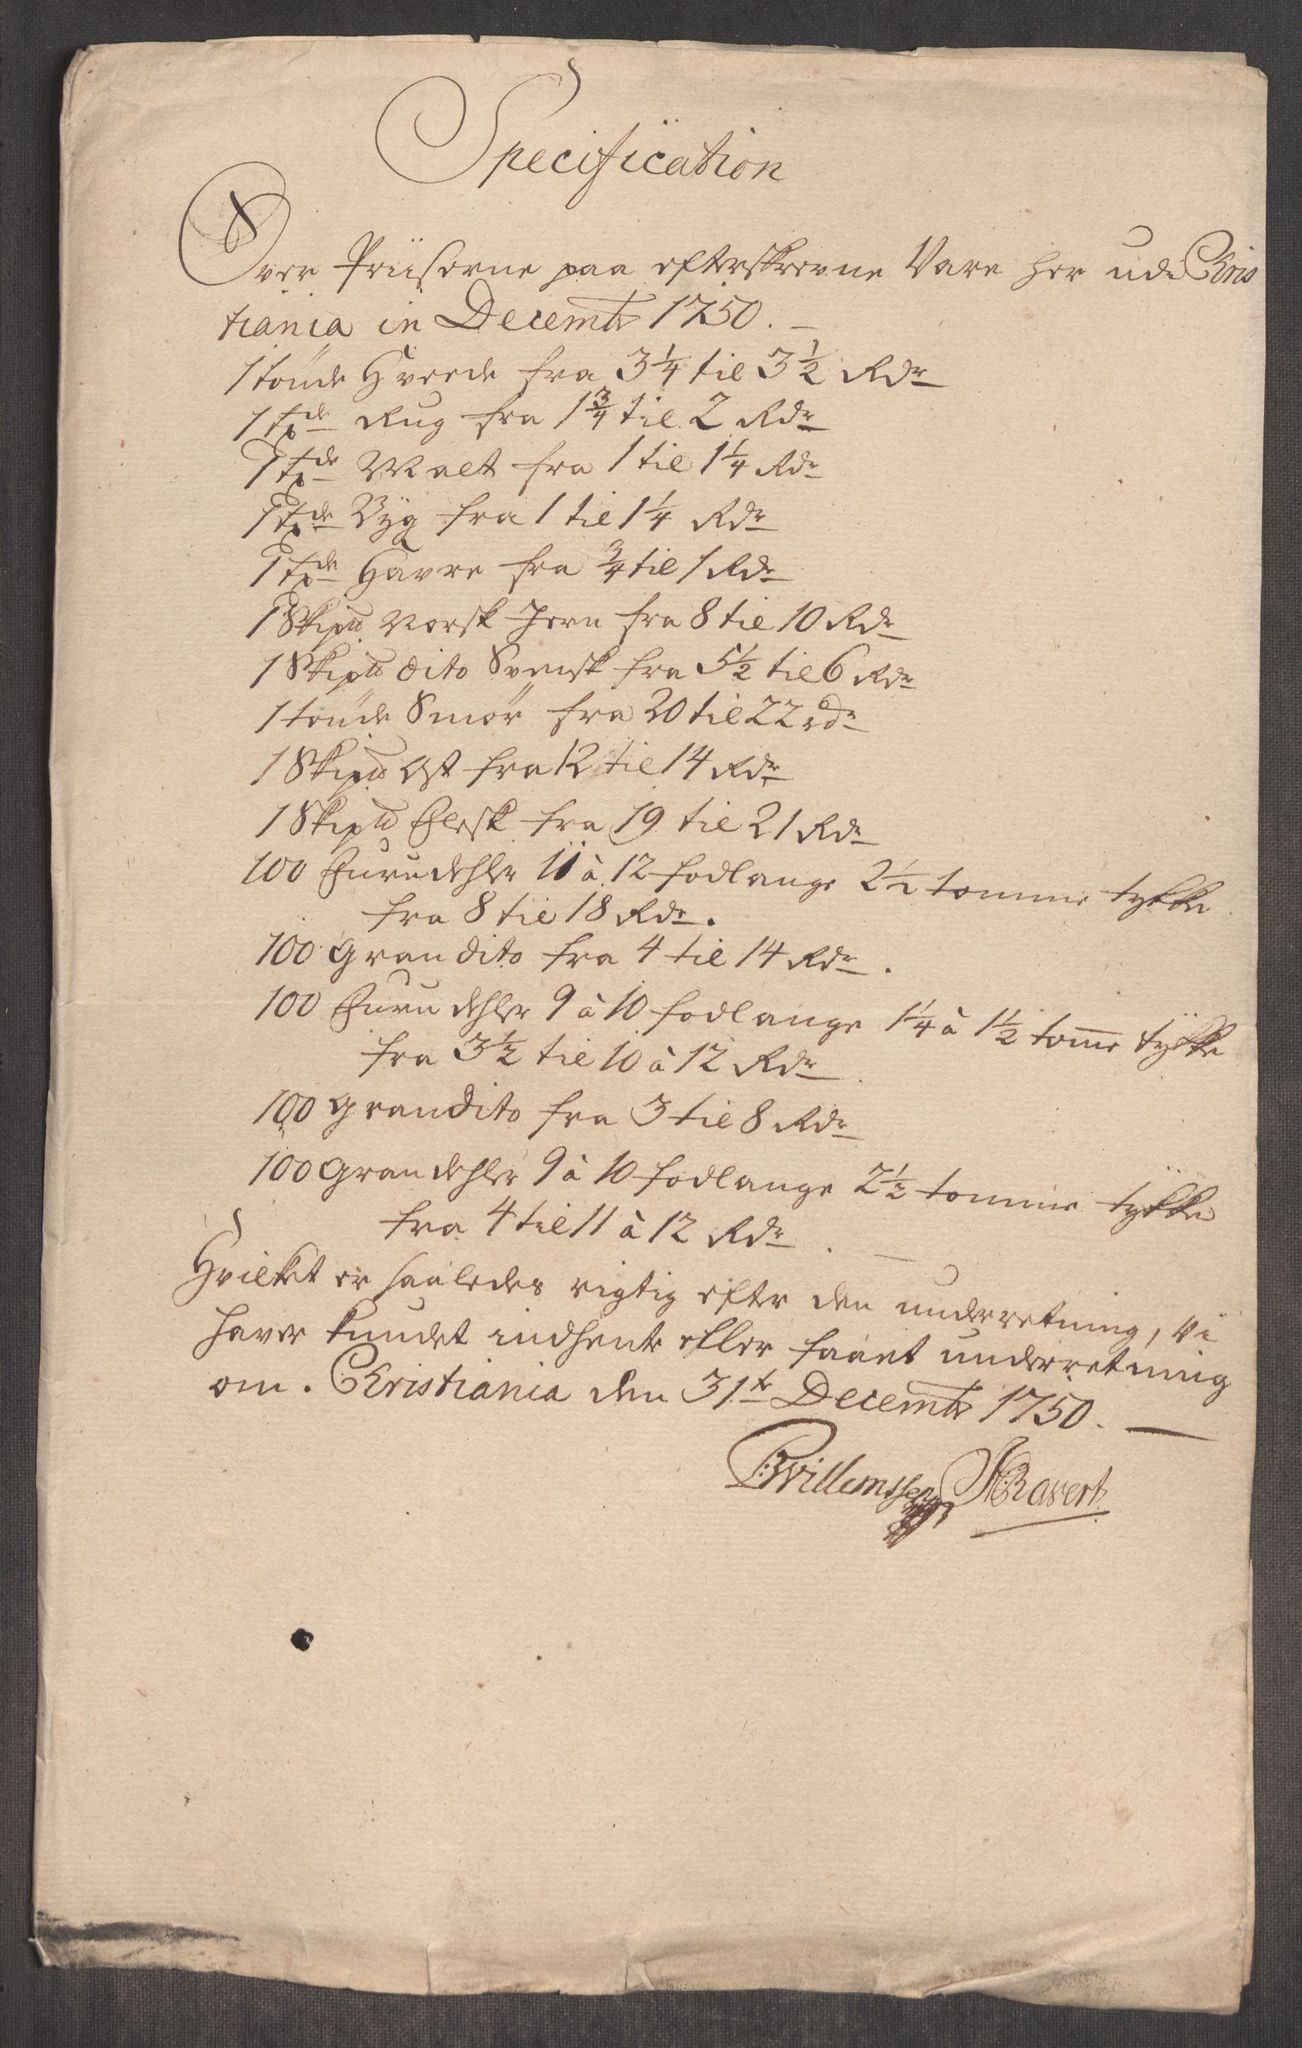 Specification
Over Priiserne paa efterskrevne Vare her udi Chris
tiania in Decembr 1750. —
1 tønde Hvede fra 3 1/4 til 3 1/2 Rdr
1 tde Rug fra 1 3/4 til 2 Rdr
1 tde Malt fra 1 til 1 1/4 Rdr
1 tde Byg fra 1 til 1 1/4 Rdr
1 tde Havre fra 3/4 til 1 Rdr
1 Skip℔ Norsk Jern fra 8 til 10 Rdr
1 Skip℔ dito Svensk fra 5 1/2 til 6 Rdr
1 tønde Smør fra 20 til 22 rdr
1 Skip℔ Ost fra 12 til 14 Rdr
1 Skip℔ Flesk fra 19 til 21 Rdr
100 Furudehler 11 à 12 fodlange 2 1/2 tomme tykke
fra 8 til 18 Rdr.
100 Gran dito fra 4 til 14 Rdr.
100 Furu dehler 9 à 10 fodlange 1 1/4 à 1 1/2 tomme tykke
fra 3 1/2 til 10 à 12 Rdr
100 Gran dito fra 3 til 8 Rdr
100 Gran dehler 9 à 10 fodlange 2 1/2 tomme tykke
fra 4 til 11 à 12 Rdr. —
Hvilket er saaledes rigtig efter den underretning, vi
haver kundet indhente eller faaet underretning
om. Christiania den 31te Decembr 1750. —
Willemssen Ravert